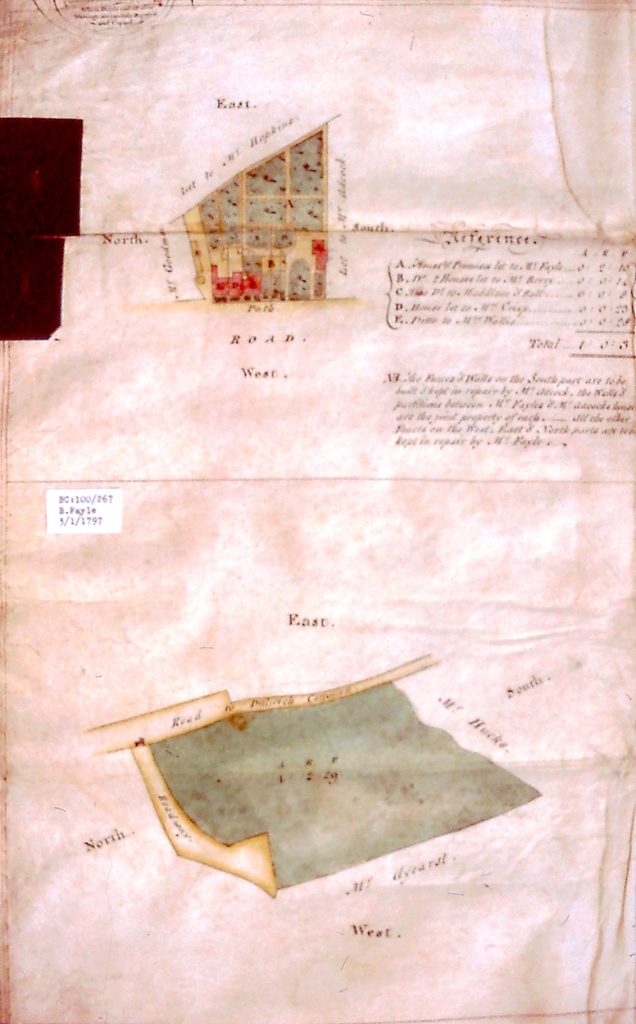 East.
let to Mr. Hopkins.
North.
Mr. Goodwin
let to Mr. Adcock
South.
A
Path
ROAD.
West.
Reference.
A R P
A. House & Premises let to Mr. Fayle 0 : 2 : 10
B. Do. 2 Houses let to Mr. Berry 0 : 0
C. Do. to 0 : 0
D. House let to Mr. Crisp 0 : 0
E. Ditto to Mr. 0 : 0
Total 1 : 0 : 3
The Fences & Walls on the South part are to be
built & kept in repair by Mr. Adcock, the Walls &
partitions between Mr. Fayles & Mr. Adcocks house
are the joint property of each. All the other
Fences on the West, East & North parts are to be
kept in repair by Mr. Fayle
BC:100/867
E.Fayle
5/1/1797
East.
Road to Dulwich Common
South.
Mr. Hucks.
A R P
1 2 19
Roadway.
North.
Mr.
West.